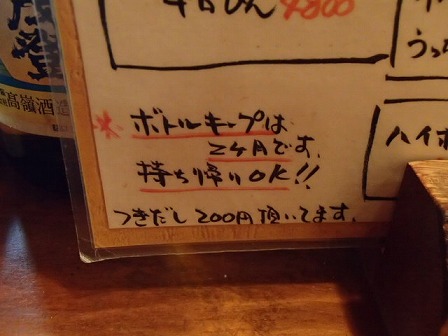 ¥800
うっ
高嶺酒造
※ボトルキープは
2ヶ月です。
持ち帰りOK!!
ハイボ
つきだし200円頂いてます。